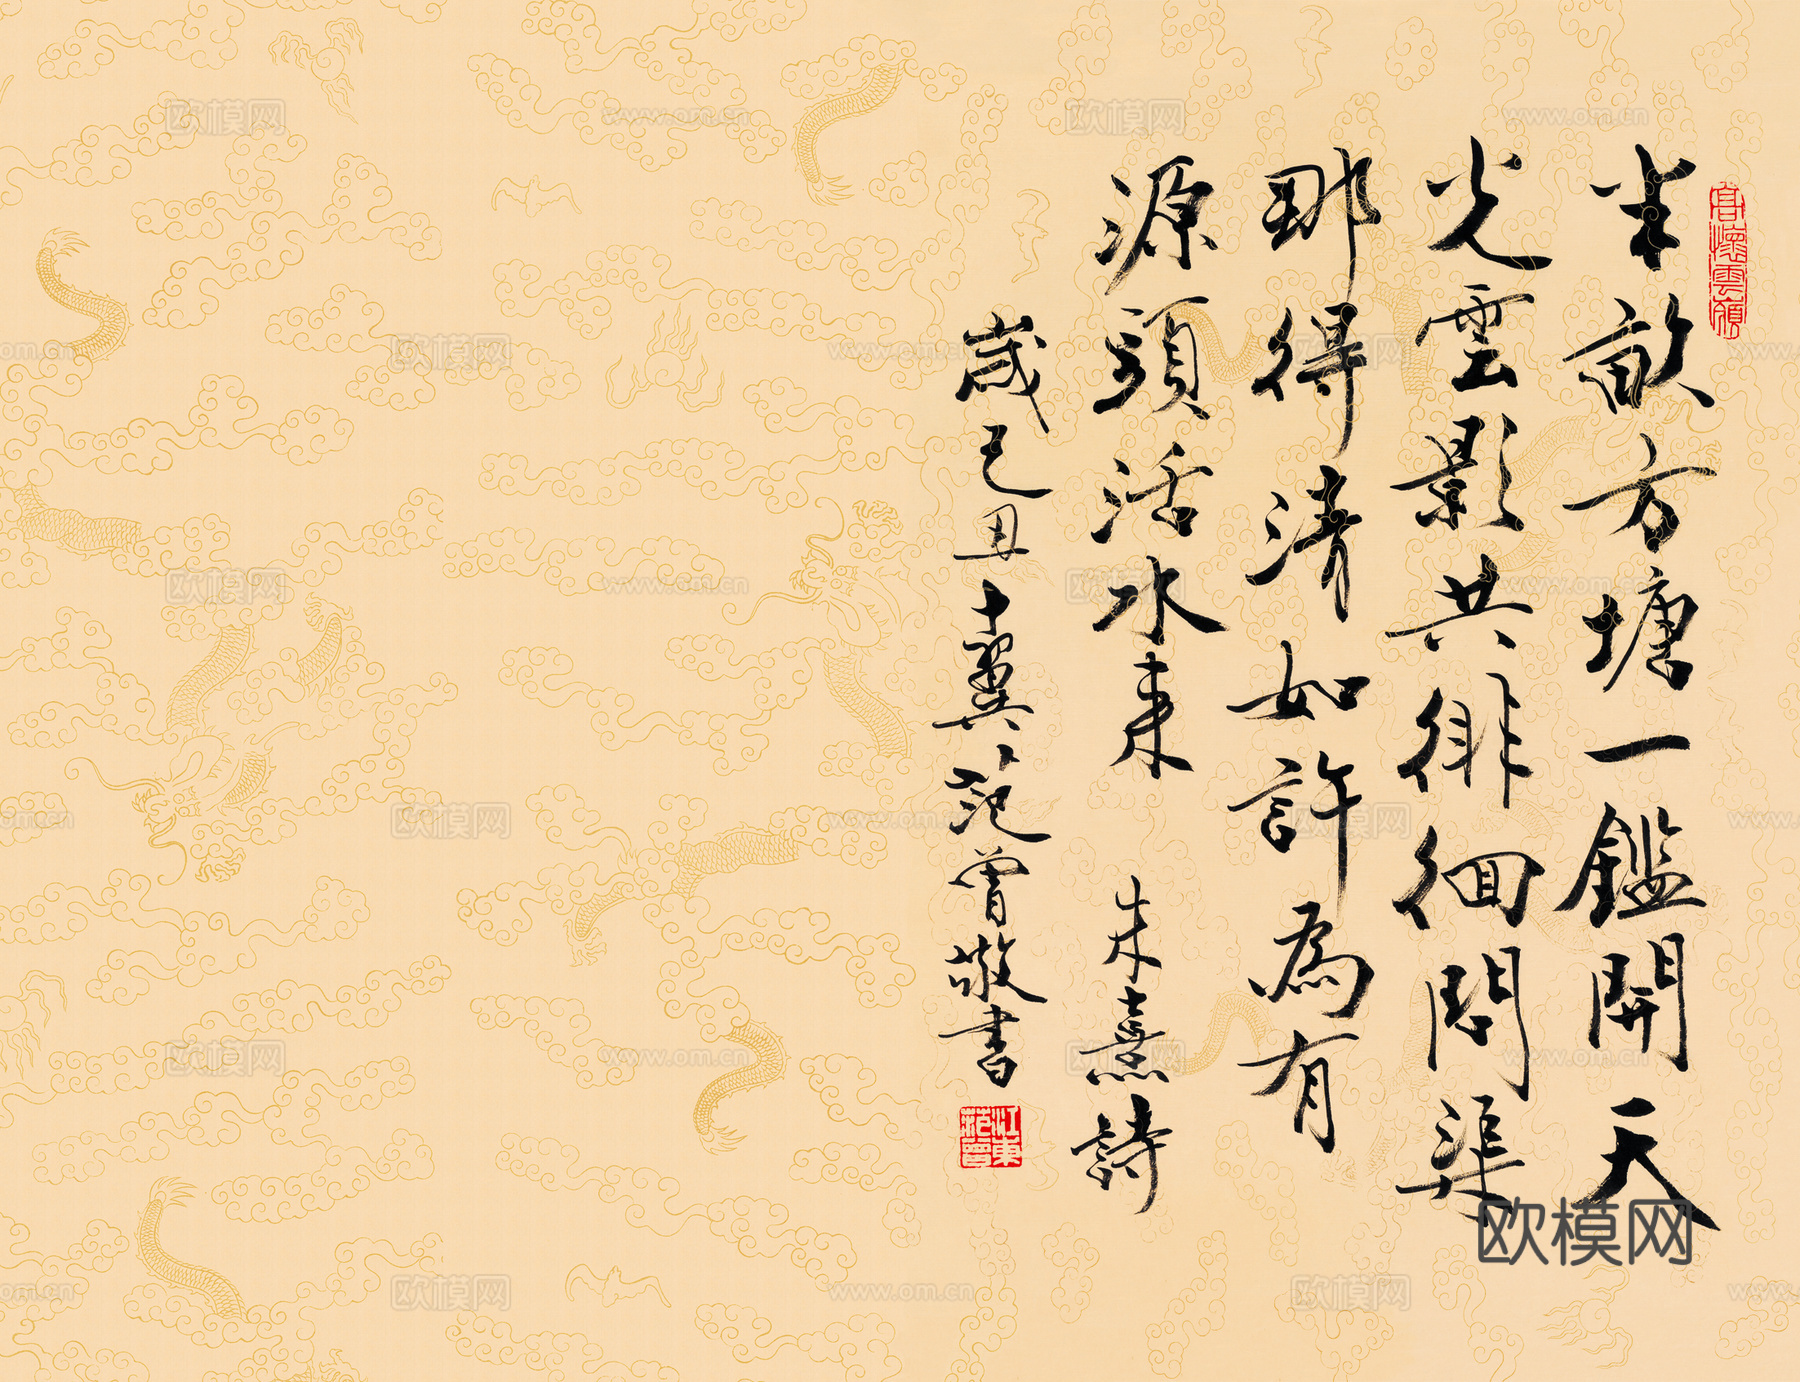 高懷雲嶺
半畝方塘一鑑開天
光雲影共徘徊問渠
那得清如許為有
源頭活水來 朱熹詩
歲己丑十翼范曾敬書
江東范曾
欧模网
www.om.cn